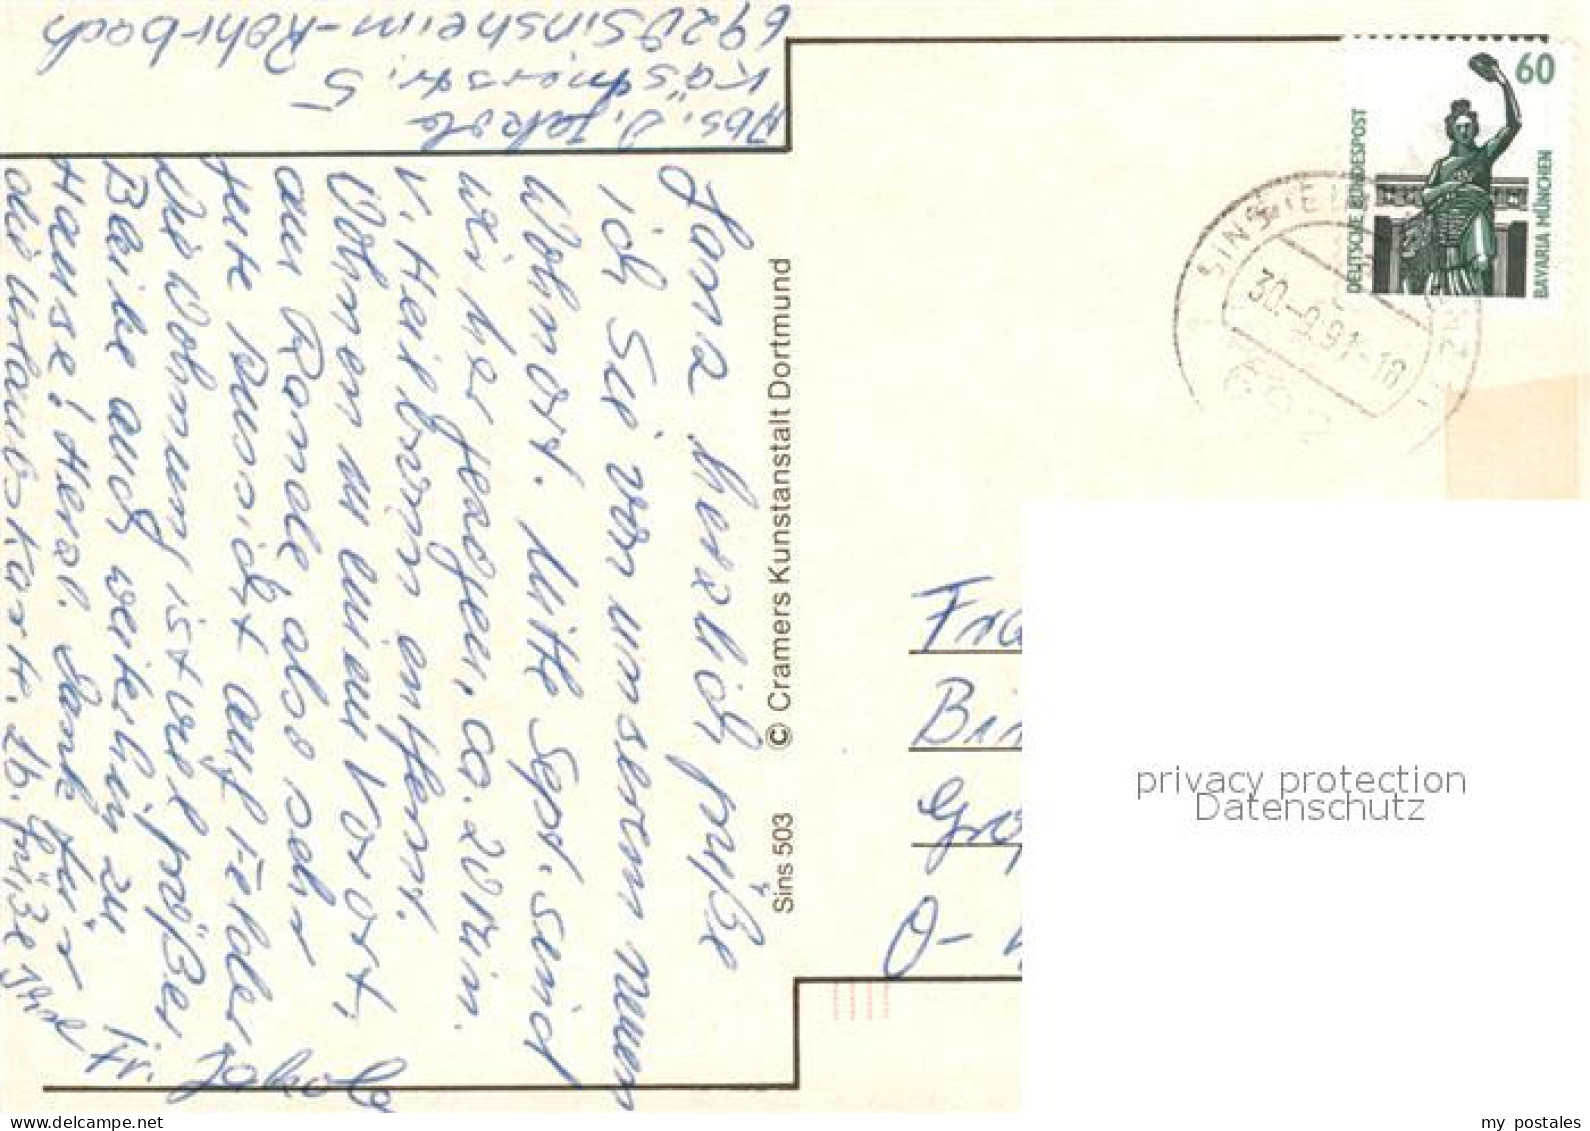 Abs. D. Jakob
Kästnerstr. 5
6920 Sinsheim-Rohrbach
Ganz herzlich grüße
ich Sie von unserem neuen
Wohnort. Mitte Sept. sind
wir hergezogen, ca. 20 km.
v. Heilbronn entfernt.
Wohnen in einem Vorort,
am Rande also sehr
gute Aussicht auf Felder
Die Wohnung ist viel größer
Bleibe auch weiterhin zu
Hause! Herzl. Dank für
die Urlaubskarte. Lb. Grüße Ihre
Fr. Jakob
Sins 503 © Cramers Kunstanstalt Dortmund
60
DEUTSCHE BUNDESPOST
BAVARIA MÜNCHEN
SINSHEIM
30.-9.91-18
Fra
Bi
Gr
O-
privacy protection
Datenschutz
my postales